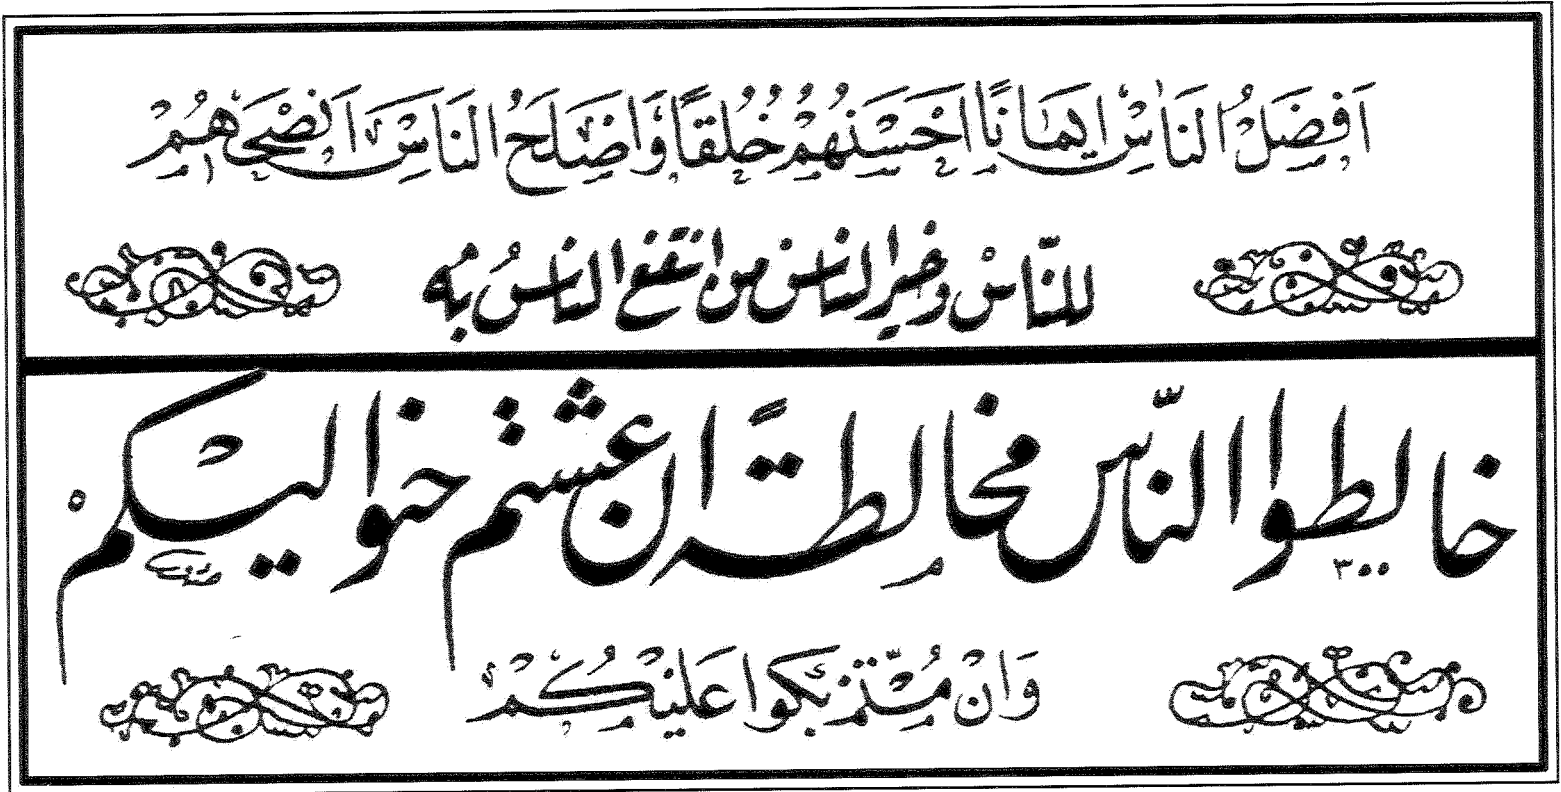 اَفْضَلُ النَّاسِ اِيمَانًا اَحْسَنُهُمْ خُلُقًا وَاَصْلَحُ النَّاسِ اَنْصَحُهُمْ
لِلنَّاسِ وَخَيْرُ النَّاسِ مَنِ انْتَفَعَ النَّاسُ بِهِ
خالطوا النّاس مخالطةً ان عشتم حنوا ليكم
وَاِنْ مُتُّمْ بَكَوْا عَلَيْكُمْ